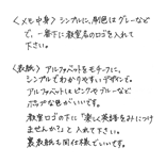 〈メモ中身〉シンプルに、刷色はグレーなど
で、一番下に教室名のロゴを入れて
下さい。
〈表紙〉アルファベットをモチーフに、
シンプルでわかりやすいデザイン。
アルファベットはピンクやブルーなど
ポップな色がいいです。
教室ロゴの下に「楽しく英語をみにつけ
ませんか?」と入れて下さい。
裏表紙も同仕様でいいです。